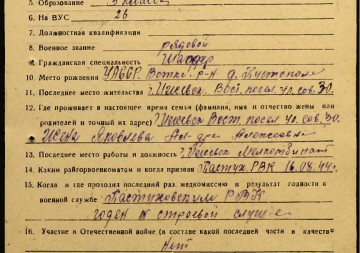 5. Образование 3 класса
6. На ВУС 26
7. Должностная квалификация
8. Военное звание рядовой
9. Гражданская специальность
10. Место рождения УАССР. Вотк. р-н д.
11. Последнее место жительства г. Ижевск. Вост. посел ул. сов. 30.
12. Где проживает в настоящее время семья (фамилия, имя и отчество жены или
родителей и точный их адрес) г. Ижевск Вост. посел ул. сов 30.
Яковлева Алексеевн
13. Последнее место работы и должность г. Ижевск
14. Каким райгорвоенкоматом и когда призван Пастух. РВК 16.08.44 г.
15. Когда и где проходил последний раз. медкомиссию и результат годности к
военной службе Пастуховским РВК
годен к строевой службе
16. Участие в Отечественной войне (в составе какой последней части и качества
Нет